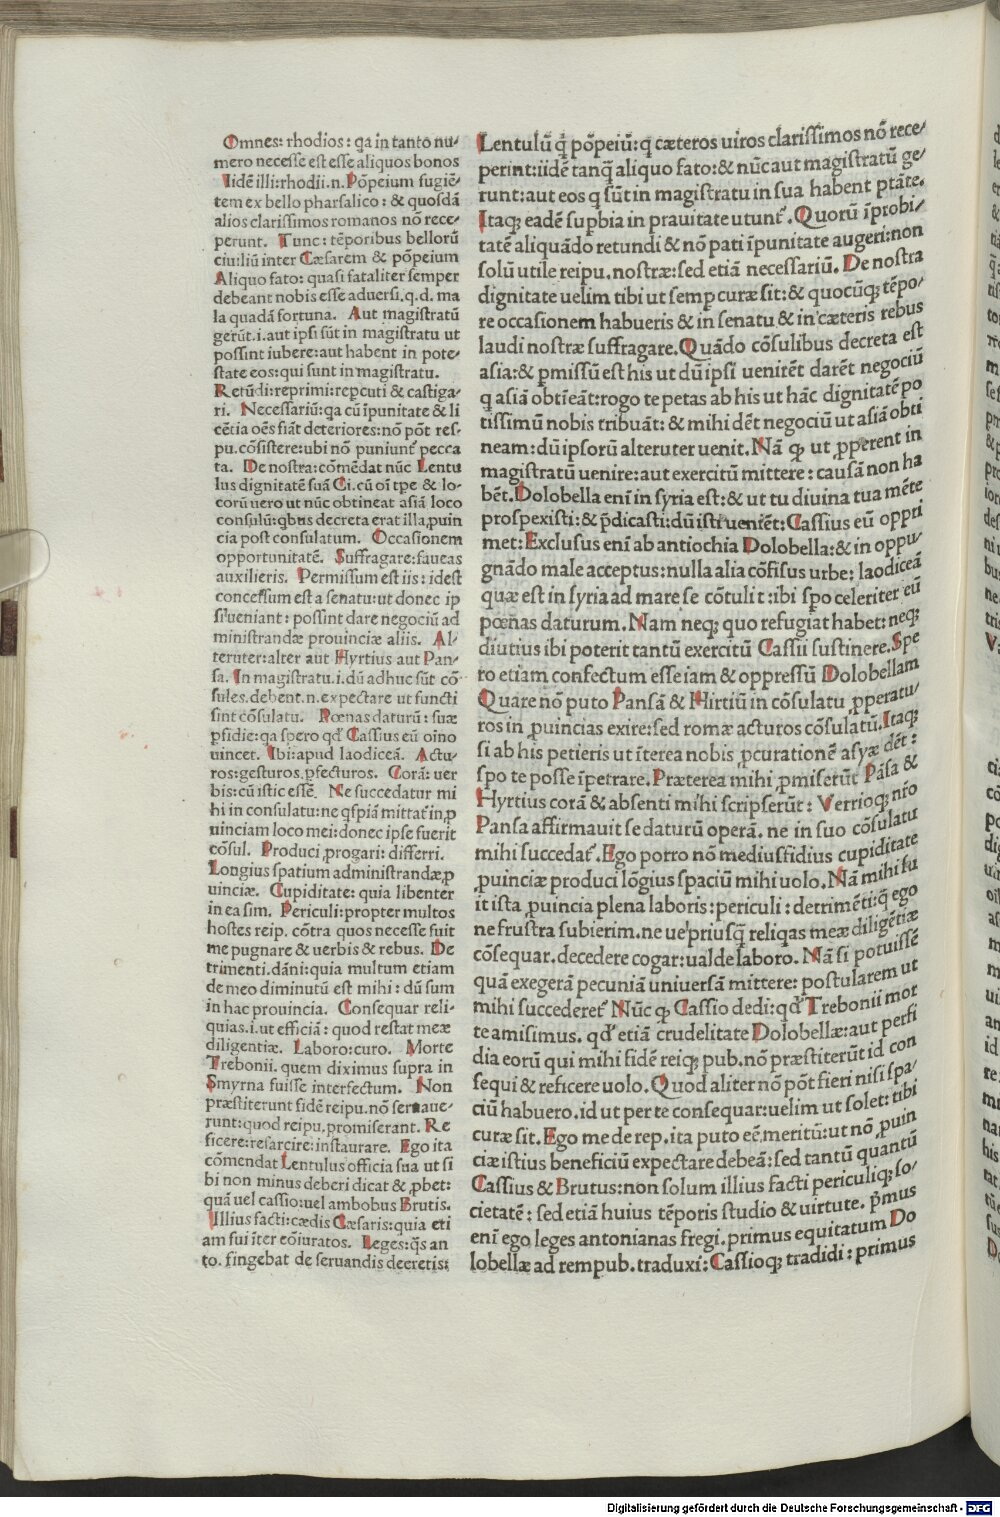 Omnes: rhodios: qa in tanto nu-
mero necesse est esse aliquos bonos
Iidē illi: rhodii.n. Pōpeium fugiē-
tem ex bello pharsalico: & quosdā
alios clarissimos romanos nō rece-
perunt. Tunc: tēporibus bellorū
ciuiliū inter Cæsarem & pōpeium
Aliquo fato: quasi fataliter semper
debeant nobis esse aduersi. q.d. ma
la quadā fortuna. Aut magistratū
gerūt.i. aut ipsi sūt in magistratu ut
possint iubere: aut habent in pote-
state eos: qui sunt in magistratu.
Retūdi: reprimi: repcuti & castiga-
ri. Necessariū: qa cū īpunitate & li
cētia oēs fiāt deteriores: nō pōt res-
pu. cōsistere: ubi nō puniunt᷑ pecca
ta. De nostra: cōmēdat nūc Lentu
lus dignitatē suā Ci. cū oī tpe & lo-
co rū uero ut nūc obtineat asiā loco
consulū: qbus decreta erat illa ꝓuin
cia post consulatum. Occasionem
opportunitatē. Suffragare: faueas
auxilieris. Permissum est iis: id est
concessum est a senatu: ut donec ip
si ueniant: possint dare negociū ad
ministrandæ prouinciæ aliis. Al-
teruter: alter aut Hyrtius aut Pan-
sa. In magistratu.i. dū adhuc sūt cō
sules. debent.n. expectare ut functi
sint cōsulatu. Pœnas daturū: suæ
pfidie: qa spero qđ Cassius eū oīno
uincet. Ibi: apud laodiceā. Actu-
ros: gesturos, ꝓfecturos. Corā: uer
bis: cū istic essē. Ne succedatur mi
hi in consulatu: ne qspiā mittat᷑ in ꝓ
uinciam loco mei: donec ipse fuerit
cōsul. Produci ꝓrogari: differri.
Longius spatium administrandæ ꝓ
uinciæ. Cupiditate: quia libenter
in ea sim. Periculi: propter multos
hostes reip. cōtra quos necesse fuit
me pugnare & uerbis & rebus. De
trimenti. dāni: quia multum etiam
de meo diminutū est mihi: dū sum
in hac prouincia. Consequar reli-
quias.i. ut efficiā: quod restat meæ
diligentiæ. Laboro: curo. Morte
Trebonii. quem diximus supra in
Smyrna fuisse interfectum. Non
præstiterunt fidē reipu. nō seruaue-
runt: quod reipu. promiserant. Re
ficere: resarcire: instaurare. Ego ita
cōmendat Lentulus officia sua ut si
bi non minus deberi dicat & ꝓbet:
quā uel cassio: uel ambobus Brutis.
Illius facti: cædis Cæsaris: quia eti
am fui īter cōiuratos. Leges: qs an
to. fingebat de seruandis decretis:
Lentulū q̄ pōpeiū: q cæteros uiros clarissimos nō rece-
perint: iidē tanq̄ aliquo fato: & nūc aut magistratū ge-
runt: aut eos q sūt in magistratu in sua habent ptāte.
Itaq; eadē supbia in prauitate utunt᷑. Quorū īprobi-
tatē aliquādo retundi & nō pati īpunitate augeri: non
solū utile reipu. nostræ: sed etiā necessariū. De nostra
dignitate uelim tibi ut semp curæ sit: & quocūq; tēpo-
re occasionem habueris & in senatu & in cæteris rebus
laudi nostræ suffragare. Quādo cōsulibus decreta est
asia: & pmissū est his ut dū ipsi uenirēt darēt negociū
q asiā obtīeāt: rogo te petas ab his ut hāc dignitatē po
tissimū nobis tribuāt: & mihi dēt negociū ut asiā obti
neam: dū ipsorū alteruter uenit. Nā q ut ꝓperent in
magistratū uenire: aut exercitū mittere: causā non ha
bēt. Dolobella enī in syria est: & ut tu diuina tua mēte
prospexisti: & p̄dicasti: dū isti ueniēt: Cassius eū oppri
met: Exclusus enī ab antiochia Dolobella: & in oppu-
gnādo male acceptus: nulla alia cōfisus urbe: laodiceā
quæ est in syria ad mare se cōtulit: ibi spo celeriter eū
pœnas daturum. Nam neq; quo refugiat habet: neq;
diutius ibi poterit tantū exercitū Cassii sustinere. Spe
ro etiam confectum esse iam & oppressū Dolobellam
Quare nō puto Pansā & Hirtiū in cōsulatu ꝓperatu-
ros in ꝓuincias exire: sed romæ acturos cōsulatū. Itaq;
si ab his petieris ut īterea nobis ꝓcurationē asyæ dēt:
spo te posse īpetrare. Præterea mihi ꝓmiserūt Pāsa &
Hyrtius corā & absenti mihi scripserūt: Verrioq; nr̄o
Pansa affirmauit se daturū operā. ne in suo cōsulatu
mihi succedat᷑. Ego porro nō mediusfidius cupiditate
ꝓuinciæ produci lōgius spaciū mihi uolo. Nā mihi fu
it ista ꝓuincia plena laboris: periculi: detrimēti: q̄ ego
ne frustra subierim. ne ue priusq̄ reliqas meæ diligētiæ
cōsequar. decedere cogar: ualde laboro. Nā si potuissē
quā exegerā pecuniā uniuersā mittere: postularem ut
mihi succederet᷑ Nūc q Cassio dedi: qđ Trebonii mor
te amisimus. qđ etiā crudelitate Dolobellæ: aut perfi
dia eorū qui mihi fidē reiq; pub. nō præstiterūt id con
sequi & reficere uolo. Quod aliter nō pōt fieri nisi spa-
ciū habuero. id ut per te consequar: uelim ut solet: tibi
curæ sit. Ego me de rep. ita puto eē meritū: ut nō ꝓuin
ciæ istius beneficiū expectare debeā: sed tantū quantū
Cassius & Brutus: non solum illius facti periculiq; so-
cietatē: sed etiā huius tēporis studio & uirtute. p̄mus
enī ego leges antonianas fregi. primus equitatum Do
lobellæ ad rempub. traduxi: Cassioq; tradidi: primus
Digitalisierung gefördert durch die Deutsche Forschungsgemeinschaft - DFG